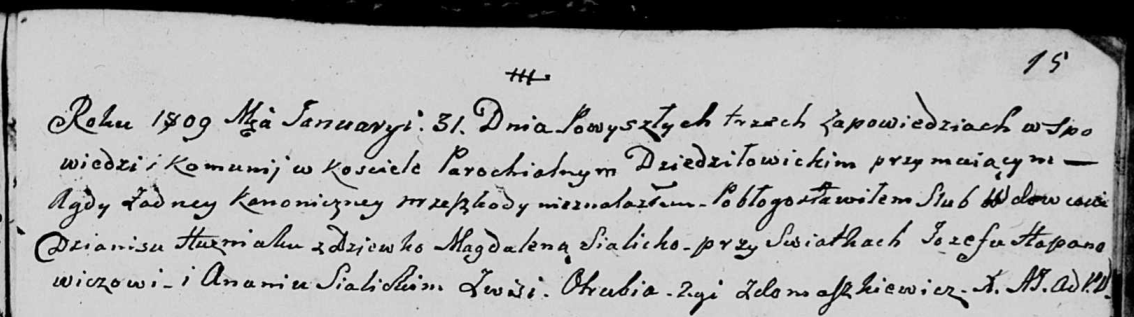 15
Roku 1809 Mca Januaryi. 31. Dnia Powyszłych trzech zapowiedziach w spo
wiedzi i Komunij w kosciele Parochialnym Dziedziłowickim przymuiącym —
Agdy żadney Kanoniczney przeszkody nieznalazłem - Pobłogosławiłem Slub Wdowcowi
Dzianisu Huzniaku z Dziewko Magdaleną Sialicko - przy Swiatkach Jozefu
wiczowi - i Ananiu Sialickim Zwsi. Otrubia -